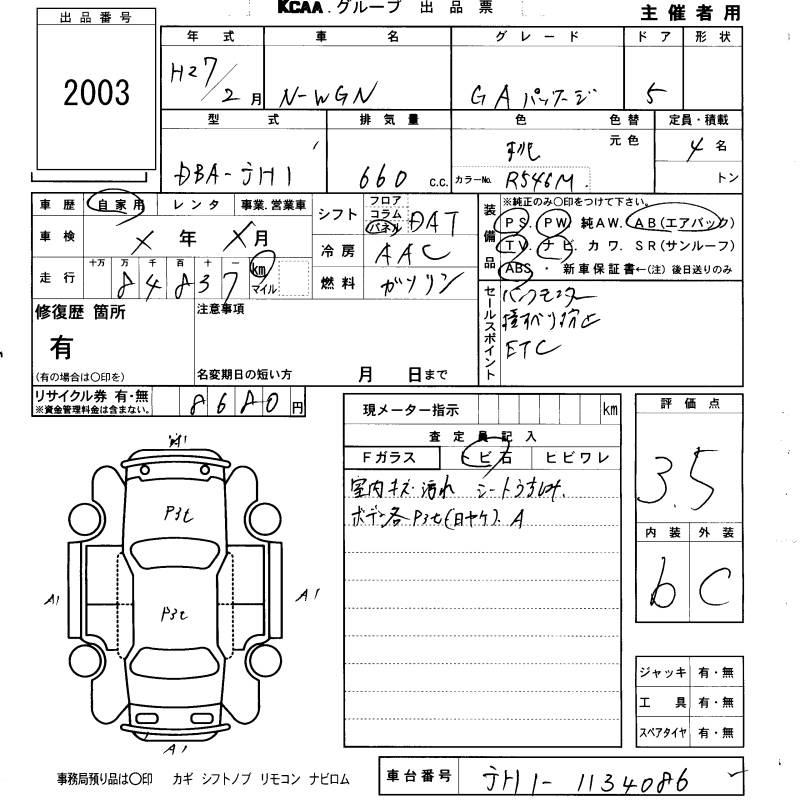 KCAA.グループ 出品票
主催者用
出品番号
2003
年式 車名 グレード ドア 形状
H27/2月 N-WGN GAパッケージ 5
型式 排気量 色 色替 定員・積載
元色
DBA-JH1 660 c.c. 桃 4名
カラーNo. R546M トン
車歴 自家用 レンタ 事業.営業車
車検 × 年 × 月
走行 十万 万 千 百 十 一
84837 km マイル
シフト フロア コラム パネル DAT
冷房 AAC
燃料 ガソリン
装備品
※純正のみ〇印をつけて下さい。
PS. PW. 純AW. AB(エアバック)
TV. ナビ. カワ. SR(サンルーフ)
ABS ・ 新車保証書←(注) 後日送りのみ
修復歴 箇所
有
(有の場合は〇印を)
注意事項
名変期日の短い方 月 日まで
セールスポイント
バックモニター
横すべり防止
ETC
リサイクル券 有・無
※資金管理料金は含まない。
8680円
現メーター指示 km
査定員記入
Fガラス トビ石 ヒビワレ
室内キズ・汚れ シートうすしみ.
ボデー各P3t(日ヤケ). A
評価点
3.5
内装 外装
b C
A1
P3t
A1 P3t A1
A1
ジャッキ 有・無
工具 有・無
スペアタイヤ 有・無
事務局預り品は〇印 カギ シフトノブ リモコン ナビロム
車台番号 JH1-1134086